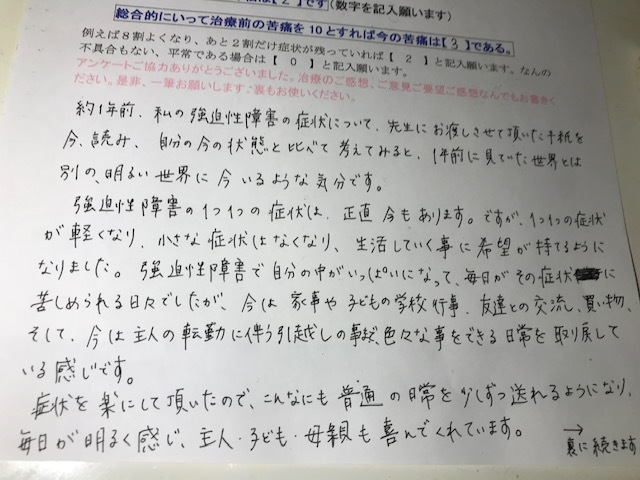 【2】です(数字を記入願います)
総合的にいって治療前の苦痛を10とすれば今の苦痛は【3】である。
例えば8割よくなり、あと2割だけ症状が残っていれば【 2 】と記入願います。なんの
不具合もない、平常である場合は【 0 】と記入願います。
アンケートご協力ありがとうございました。治療のご感想、ご意見ご要望ご感想なんでもお書きく
ださい。是非、一筆お願いします。裏もお使いください。
約1年前、私の強迫性障害の症状について、先生にお渡しさせて頂いた手紙を
今、読み、自分の今の状態と比べて考えてみると、1年前に見ていた世界とは
別の、明るい世界に今いるような気分です。
強迫性障害の1つ1つの症状は、正直今もあります。ですが、1つ1つの症状
が軽くなり、小さな症状はなくなり、生活していく事に希望が持てるように
なりました。強迫性障害で自分の中がいっぱいになって、毎日がその症状に
苦しめられる日々でしたが、今は家事や子どもの学校行事、友達との交流、買い物、
そして、今は主人の転勤に伴う引越しの事など、色々な事をできる日常を取り戻して
いる感じです。
症状を楽にして頂いたので、こんなにも普通の日常を少しずつ送れるようになり、
毎日が明るく感じ、主人・子ども・母親も喜んでくれています。
→
裏に続きます